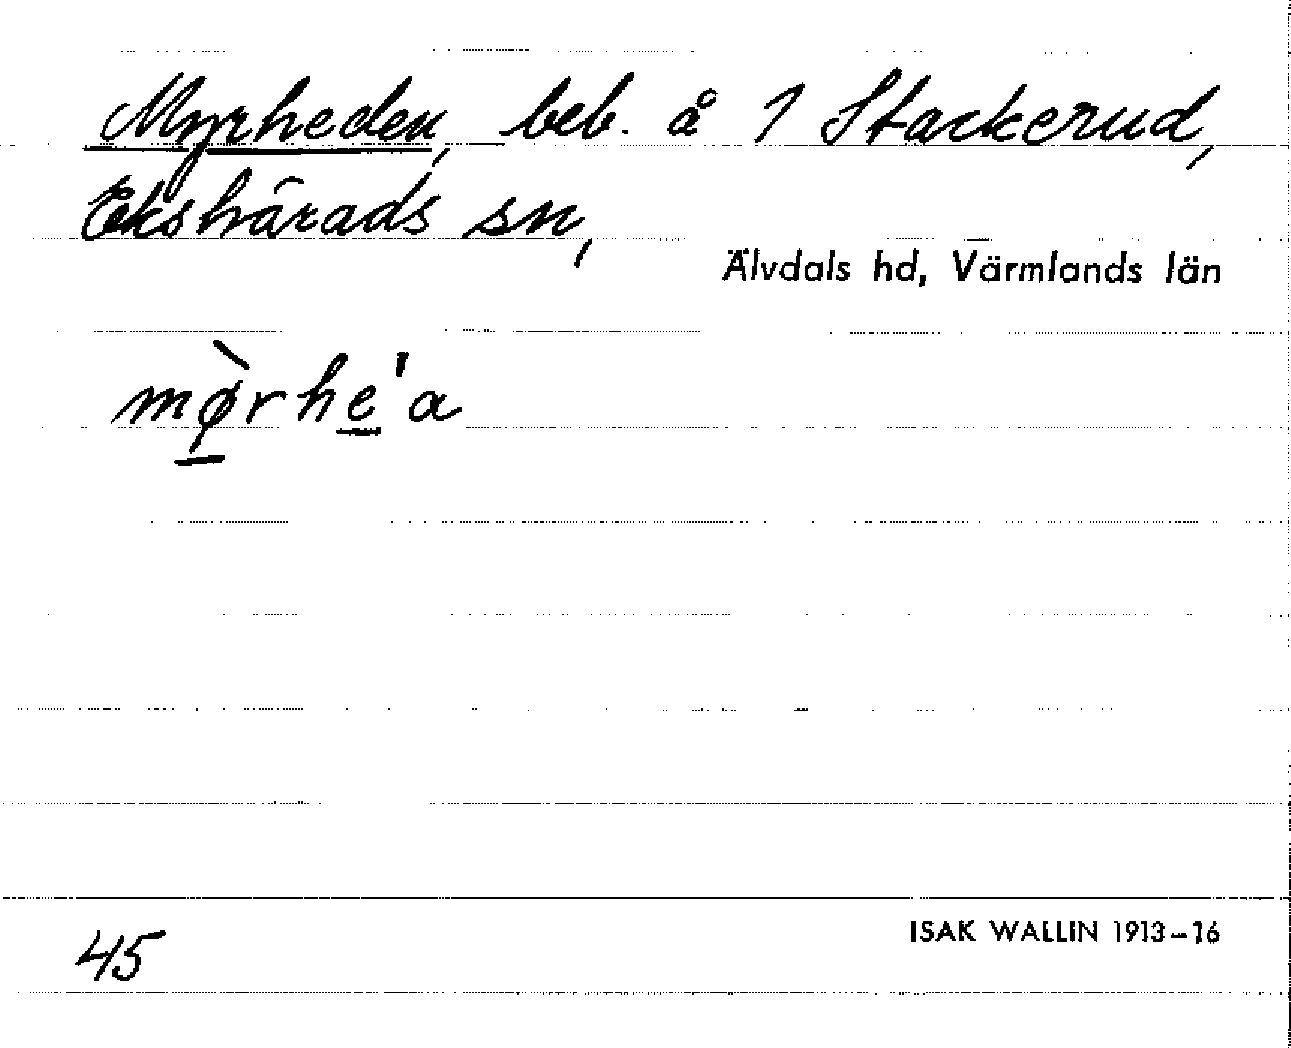 Myrheden, beb. å 1 Stackerud,
Ekshärads sn,
Älvdals hd, Värmlands län
mø̀rhe'a
45
ISAK WALLIN 1913-16